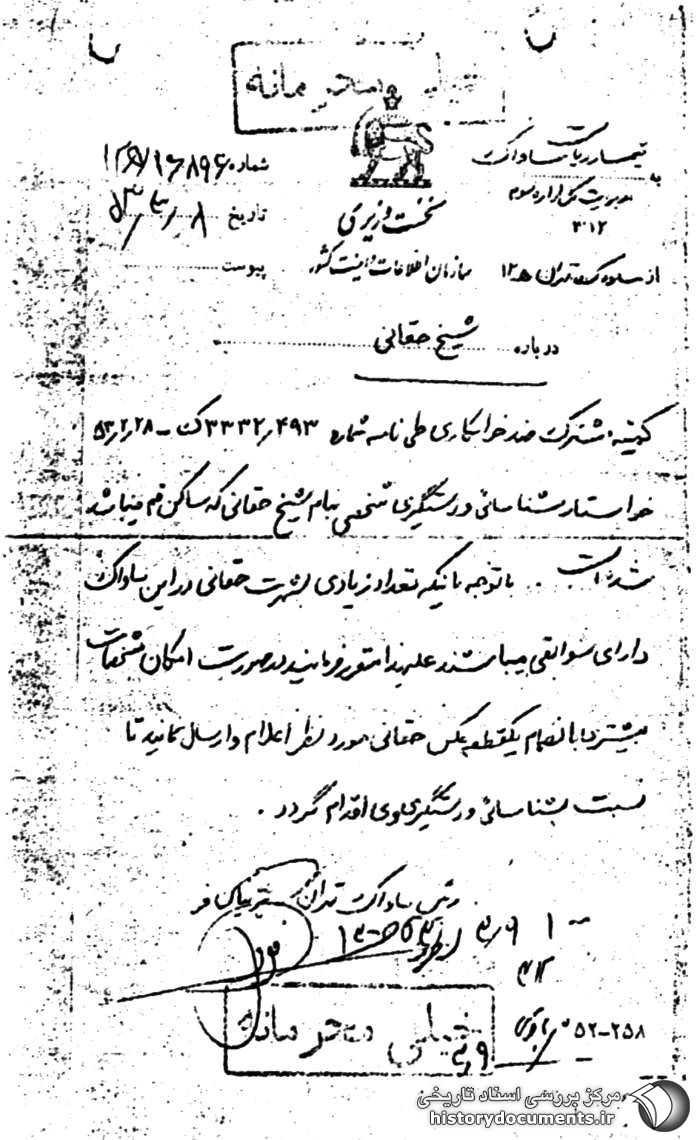 خیلی محرمانه
تیمسار ریاست ساواک
به
مدیریت کل اداره سوم
۳۱۲
شماره ۱۶۸۹۶
تاریخ ۵۳/۳/۸
پیوست
نخست وزیری
سازمان اطلاعات و امنیت کشور
از ساواک تهران ۱۲ﻫ
درباره شیخ حقانی
کمیته مشترک ضد خرابکاری طی نامه شماره ۳۳۳۲/۴۹۳ک – ۵۳/۲/۲۸
خواستار شناسائی و دستگیری شخصی بنام شیخ حقانی که ساکن قم میباشد
شده است . با توجه باینکه تعداد زیادی بشهرت حقانی در این ساواک
دارای سوابقی میباشند علیهذا مقرر فرمایند در صورت امکان مشخصات
بیشتری با انضمام یکقطعه عکس حقانی مورد نظر اعلام و ارسال نمایند تا
نسبت بشناسائی و دستگیری وی اقدام گردد .
رئیس ساواک تهران پرنیان فر
۳/۹
۳۱۲
خیلی محرمانه
۵۲-۲۵۸
۳/۹
مرکز بررسی اسناد تاریخی
historydocuments.ir